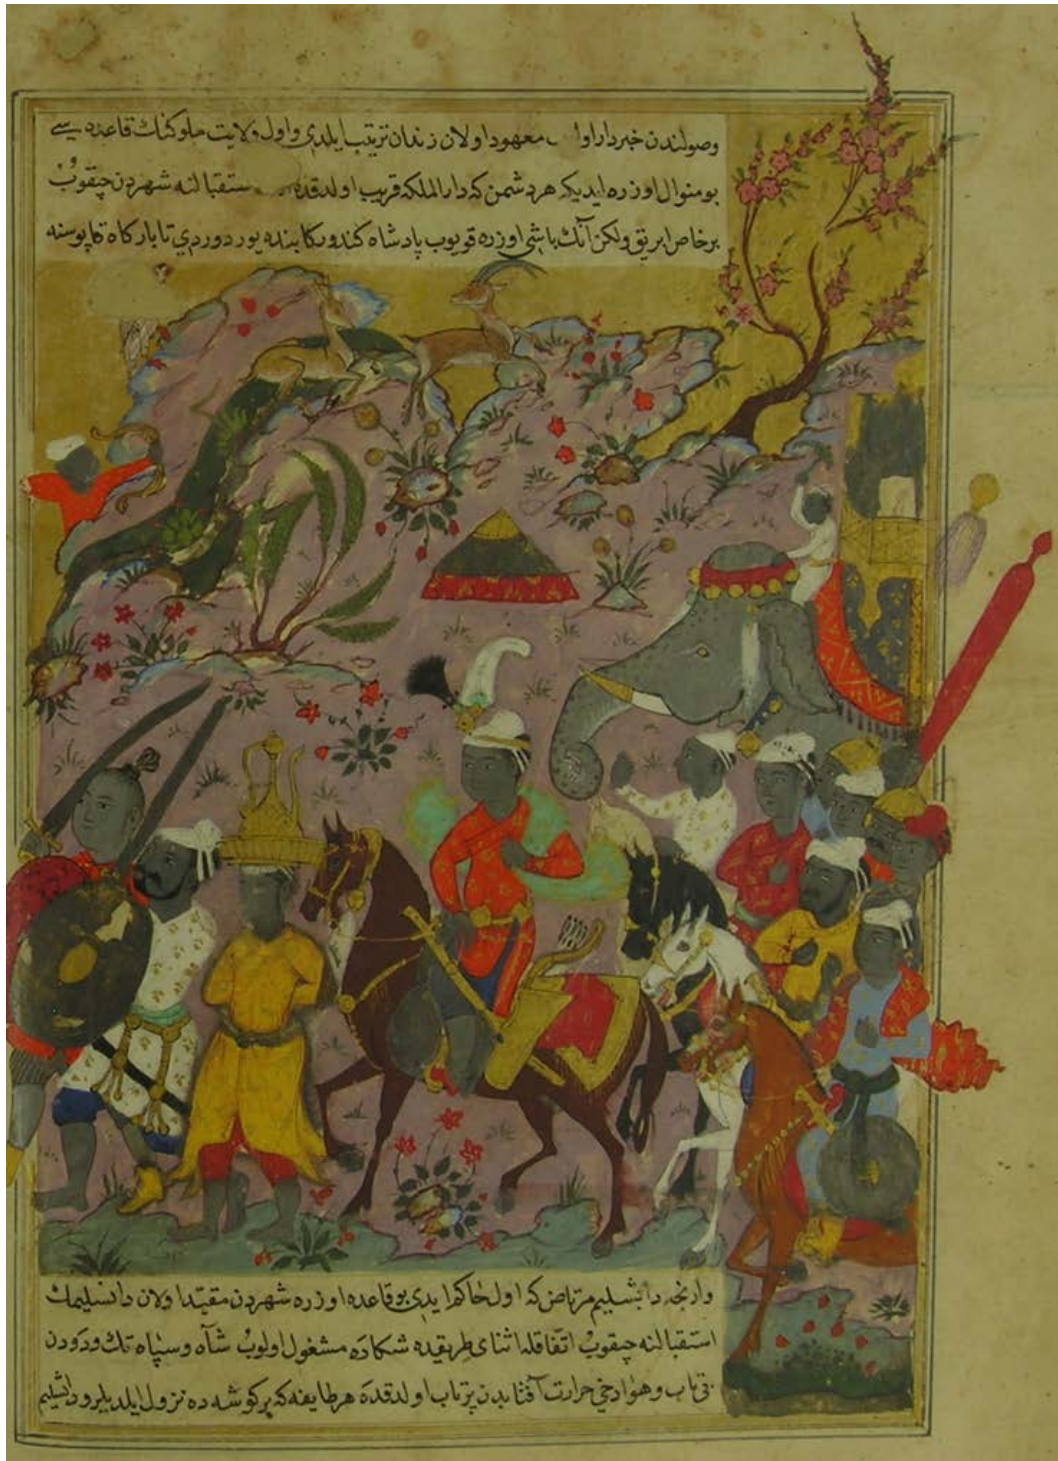 وصولندن خبردار اولـ معهود اولان زندان ترتیب ایلدی و اول ولایت ملوکنك قاعده سی
بو منوال اوزره ایدیکه هر دشمن که دار الملکه قریب اولدقده ستقبالنه شهردن چیقوب
بر خاص ابریق ولکن آنك باشی اوزره قویوب پادشاه کندو رکابنده یوردوردی تا بارکاه قاپوسنه
وارنجه دابشلیم مرتاض که اول حاکم ایدی بو قاعده اوزره شهردن مقید اولان دابشلیمك
استقبالنه چیقوب اتفاقله اثنای طریقده شکاره مشغول اولوب شاه و سپاه تك ودودن
بی تاب و هوا دخی حرارت آفتابدن پرتاب اولدقده هر طایفه که بر کوشه ده نزول ایلدیلر و دابشلیم